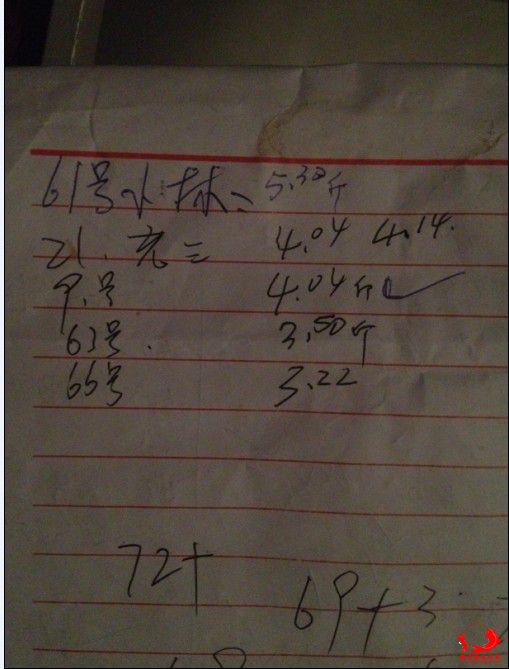 61号小林二 5.30斤
21.亮三 4.04 4.14.
9.号 4.04斤
63号. 3.50斤
66号 3.22
72+
69+3